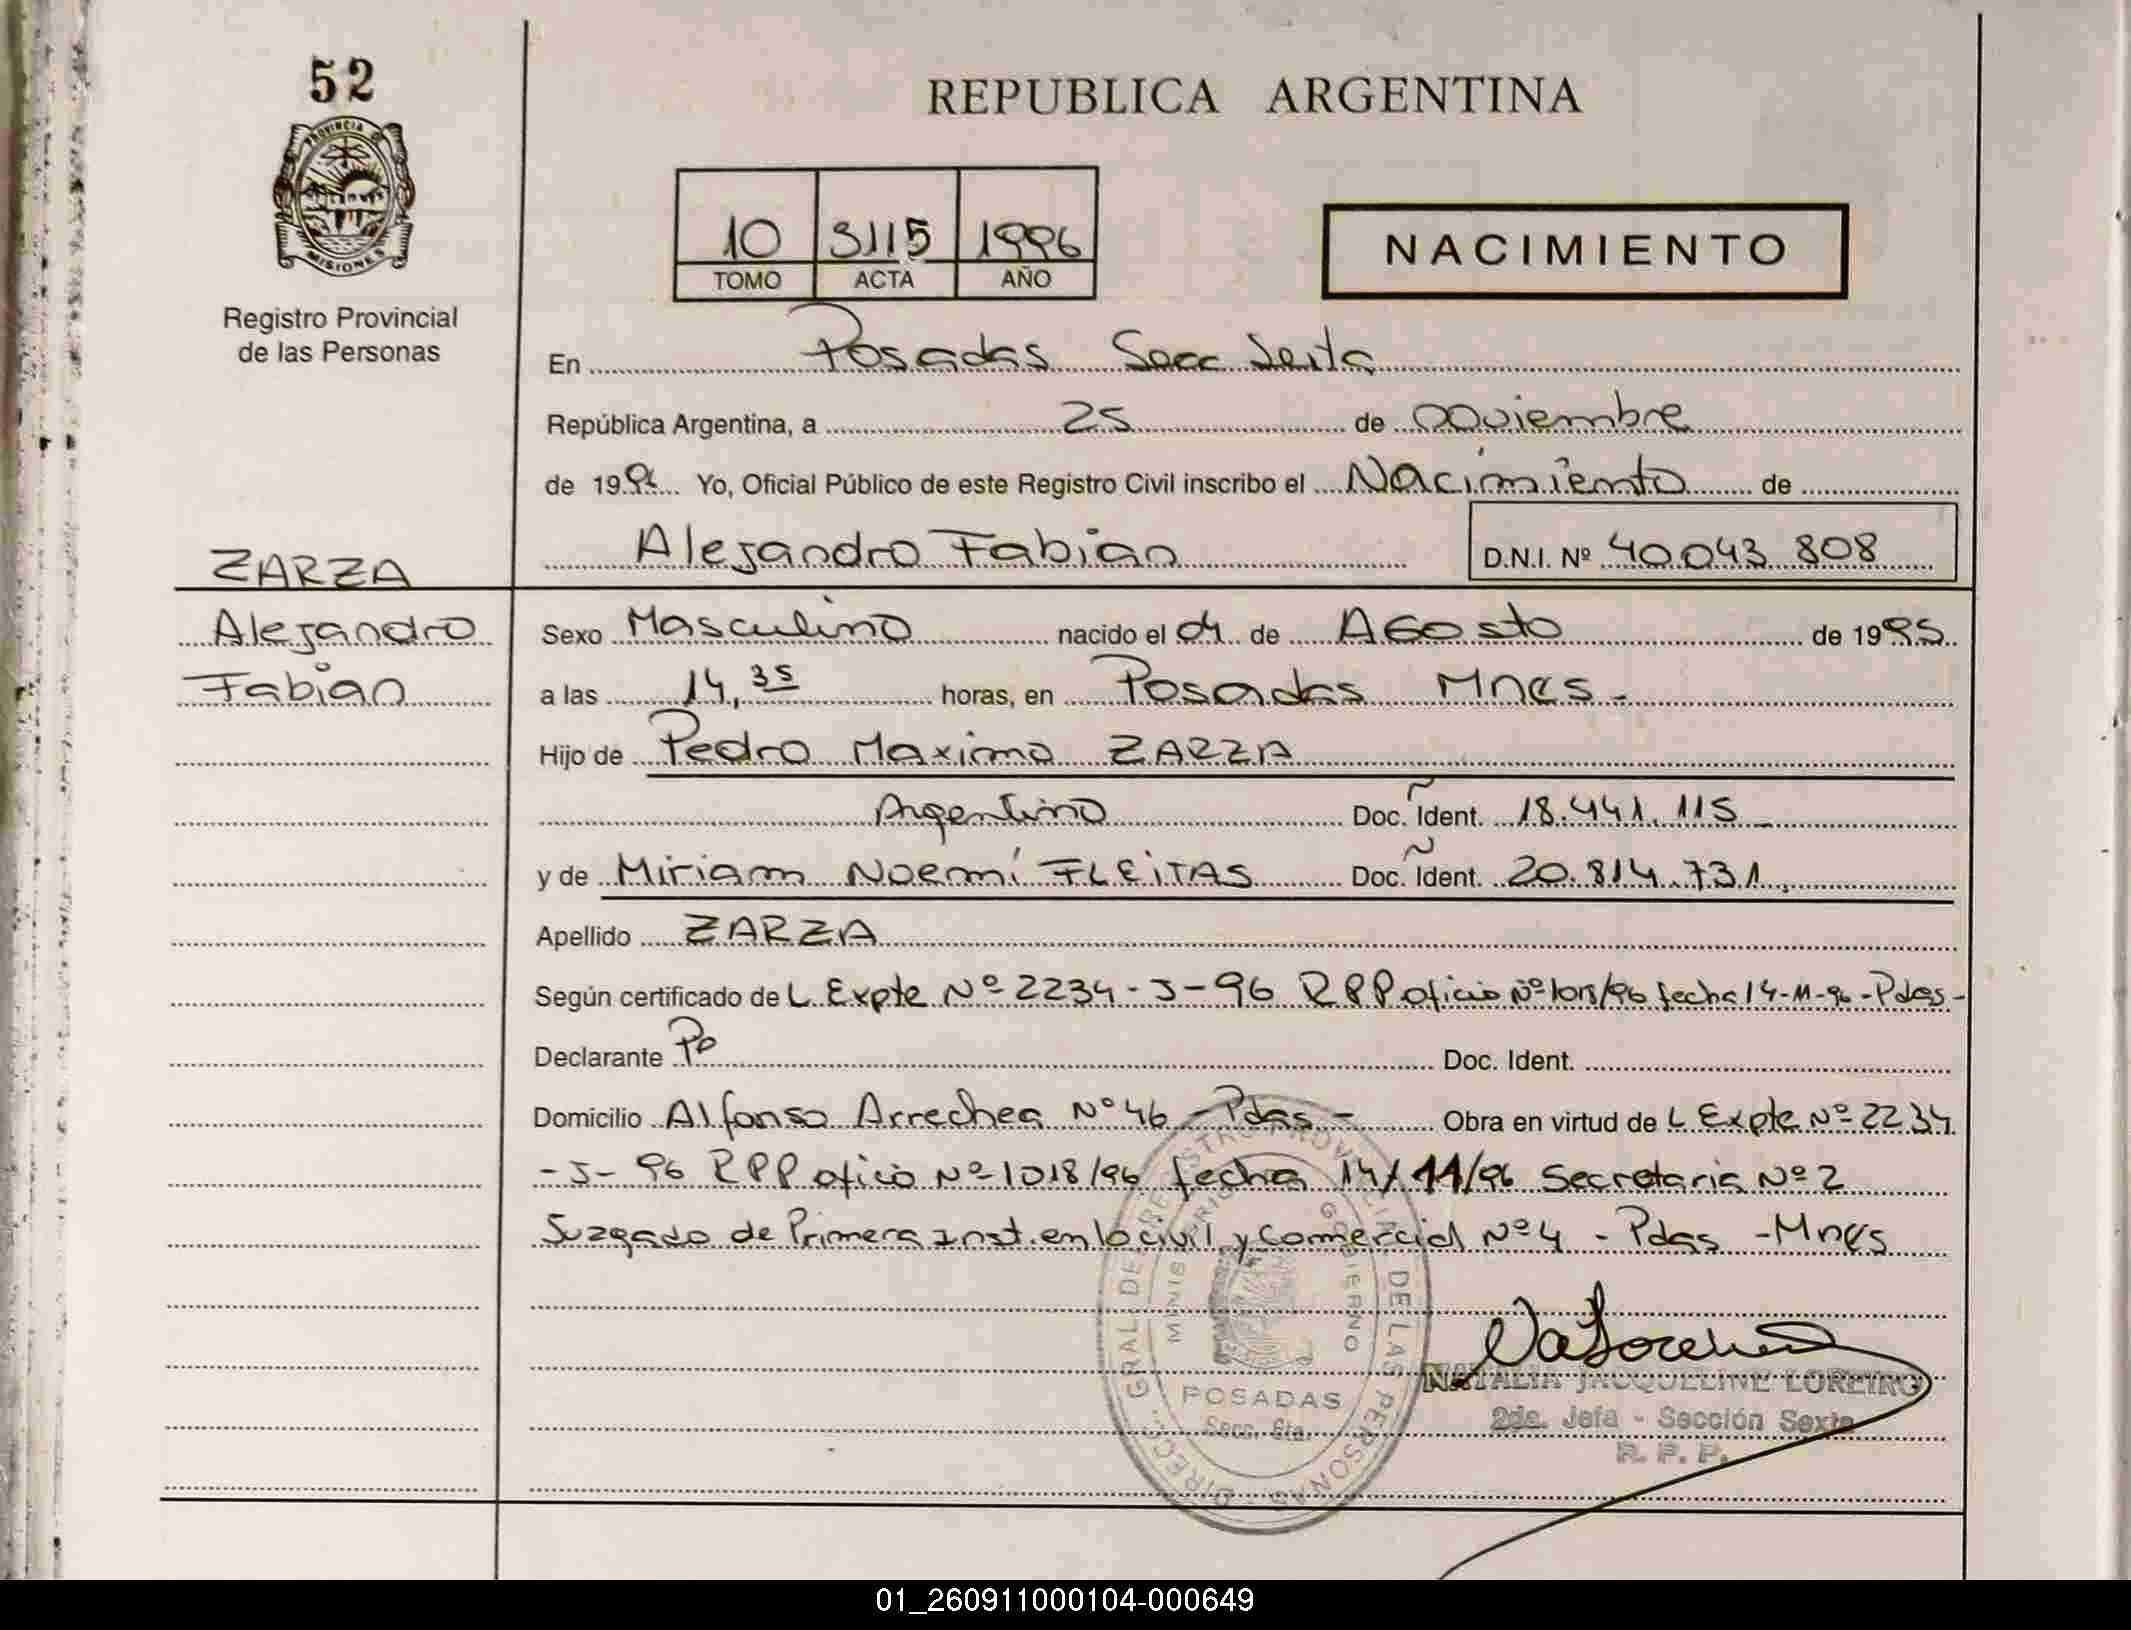 52
PROVINCIA D
MISIONES
Registro Provincial
de las Personas
REPUBLICA ARGENTINA
10 3115 1996
TOMO ACTA AÑO
NACIMIENTO
En Posadas Secc Sexta
República Argentina, a 25 de noviembre
de 1996 Yo, Oficial Público de este Registro Civil inscribo el Nacimiento de
Alejandro Fabian D.N.I. Nº 40.043.808
ZARZA
Alejandro
Fabian
Sexo Masculino nacido el 04 de Agosto de 1995
a las 14,35 horas, en Posadas Mnes -
Hijo de Pedro Maximo ZARZA
Argentino Doc. Ident. 18.441.115
y de Miriam Noemí FLEITAS Doc. Ident. 20.814.731
Apellido ZARZA
Según certificado de L Expte Nº 2234-J-96 RPP oficio Nº 1018/96 fecha 14-11-96 - Pdas -
Declarante Po Doc. Ident.
Domicilio Alfonso Arrechea Nº 46 - Pdas - Obra en virtud de L Expte Nº 2234
-J-96 RPP oficio Nº 1018/96 fecha 14/11/96 Secretaria Nº 2
Juzgado de Primera Inst. en lo civil y Comercial Nº 4 - Pdas - Mnes
DIRECC. GRAL. DE REGISTRO PROVINCIAL DE LAS PERSONAS
MINISTERIO GOBIERNO
POSADAS
Secc. 6ta.
NATALIA JACQUELINE LOREIRO
2da. Jefa - Sección Sexta
R. P. P.
01_260911000104-000649